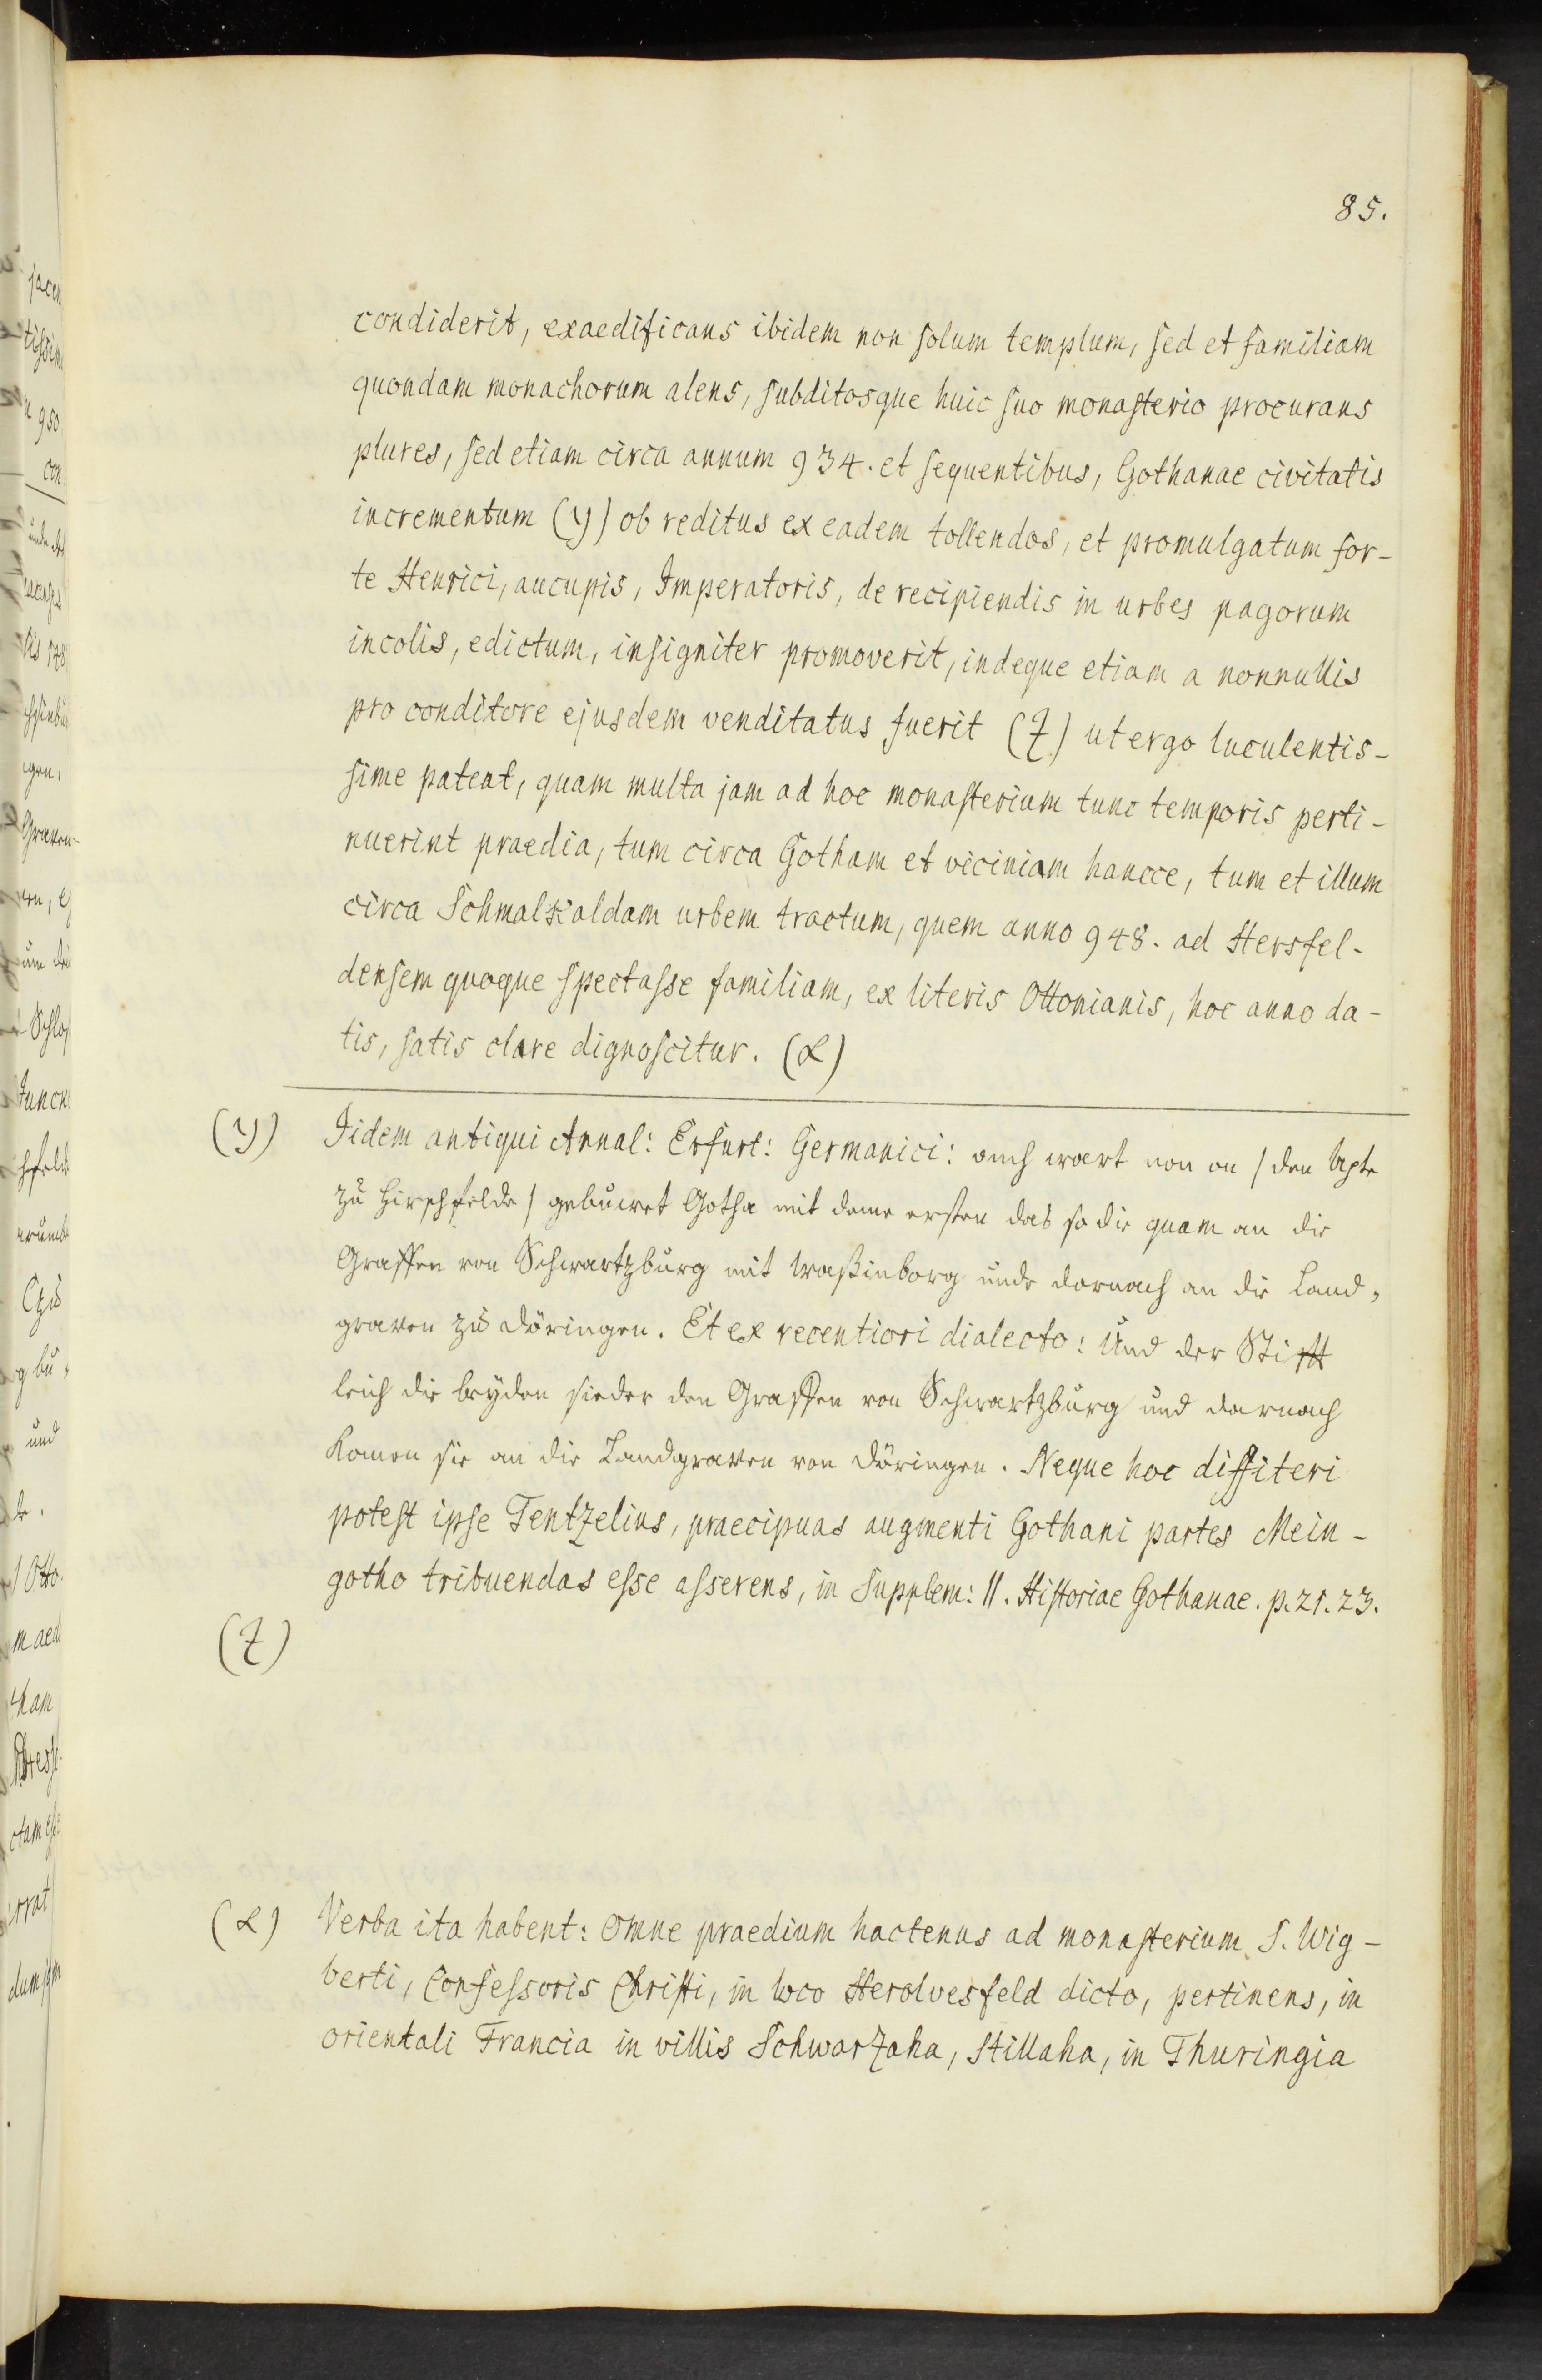 85.
condiderit, exaedificans ibidem non solum templum, sed et familiam
quondam monachorum alens, subditosque huic suo monasterio procurans
plures, sed etiam circa annum 934. et sequentibus, Gothanae civitatis
incrementum (y) ob reditus ex eadem tollendos, et promulgatum for-
te Henrici, aucupis, Imperatoris, de recipiendis in urbes pagorum
incolis, edictum, insigniter promoverit, indeque etiam a nonnullis
pro conditore ejusdem venditatus fuerit (z) ut ergo luculentis-
sime pateat, quam multa jam ad hoc monasterium tunc temporis perti-
nuerint praedia, tum circa Gotham et viciniam hancce, tum et illum
circa Schmalkaldam urbem tractum, quem anno 948. ad Hersfel-
densem quoque spectasse familiam, ex literis Ottonianis, hoc anno da-
tis, satis clare dignoscitur. (α)
(y) Iidem antiqui Annal: Erfurt: Germanici: auch wart von on / den Apte
zu Hirschfelde / gebuwet Gotha mit deme ersten das so die quam an die
Graffen von Schwartzburg mit Waßinborg unde dornach an die Land-
graven zu Döringen. Et ex recentiori dialecto: Und der Stifft
leich die beyden sieder den Graffen von Schwartzburg und darnach
komen sie an die Landgraven von Döringen. Neque hoc diffiteri
potest ipse Tentzelius, praecipuas augmenti Gothani partes Mein-
gotho tribuendas esse asserens, in Supplem: II. Historiae Gothanae. p. 21. 23.
(z)
(α) Verba ita habent: Omne praedium hactenus ad monasterium S. Wig-
berti, Confessoris Christi, in loco Herolvesfeld dicto, pertinens, in
orientali Francia in villis Schwarzaha, Stillaha, in Thuringia